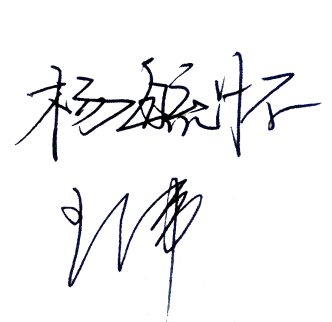 杨毓怀
王伟